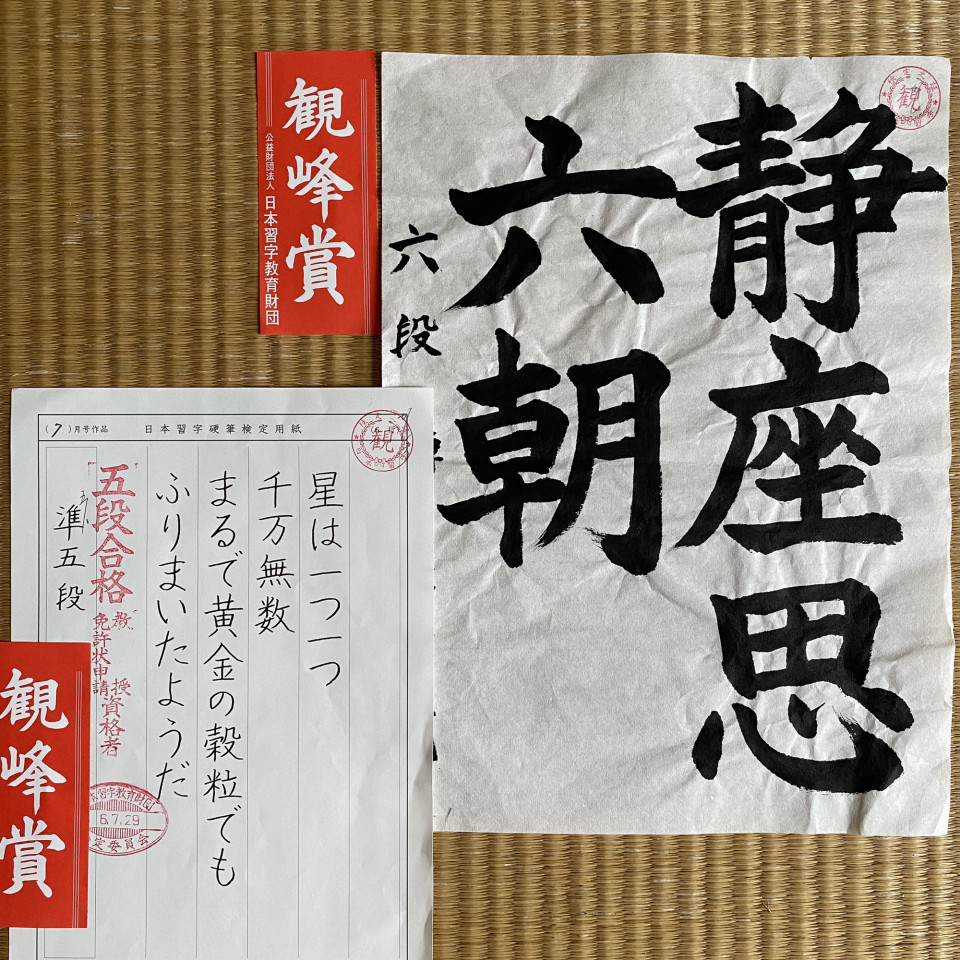 静座思
六朝
六段
観
観峰賞
公益財団法人 日本習字教育財団
(7)月号作品 日本習字硬筆検定用紙
観
星は一つ一つ
千万無数
まるで黄金の穀粒でも
ふりまいたようだ
五段合格
教授資格者
免許状申請
準五段
日本習字教育財団
6.7.29
検定委員会
観峰賞